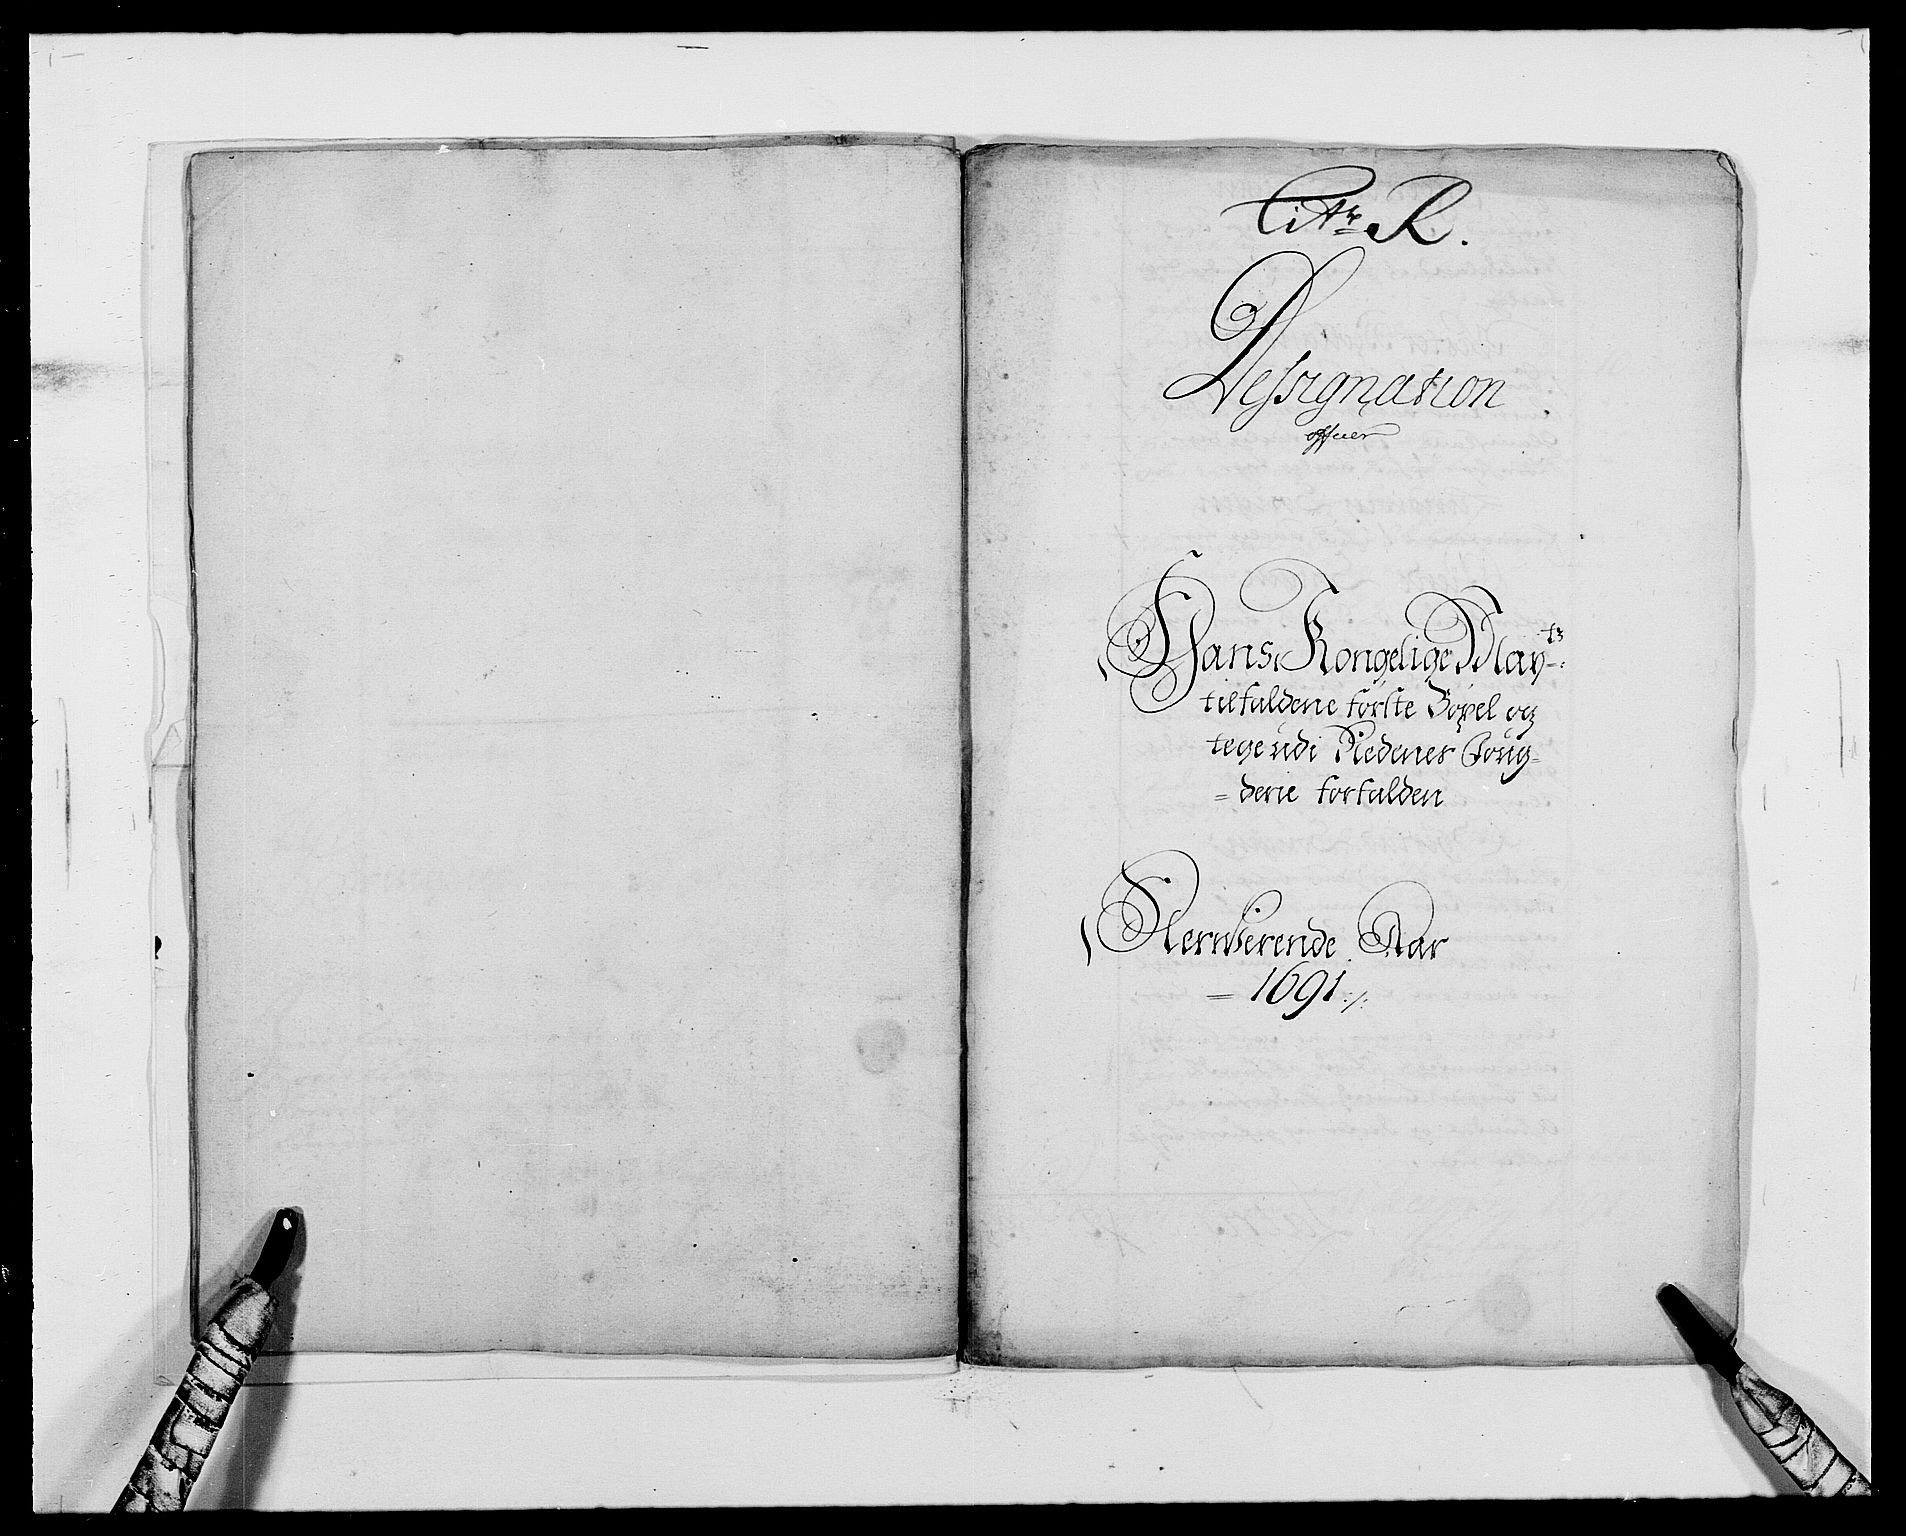 Litr R.
Designation
offuer
Hans Kongelige Mayts:
tilfaldene første Bøxel og
tege udi Nedenes Foug=
=derie forfalden
Nerwerende Aar
= 1691 ./.